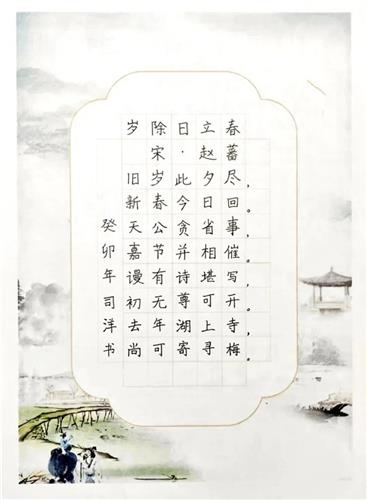 岁除日立春
宋·赵蕃
旧岁此夕尽，
新春今日回。
天公贪省事，
嘉节并相催。
谩有诗堪写，
初无尊可开。
去年湖上寺，
尚可寄寻梅。
癸卯年司洋书